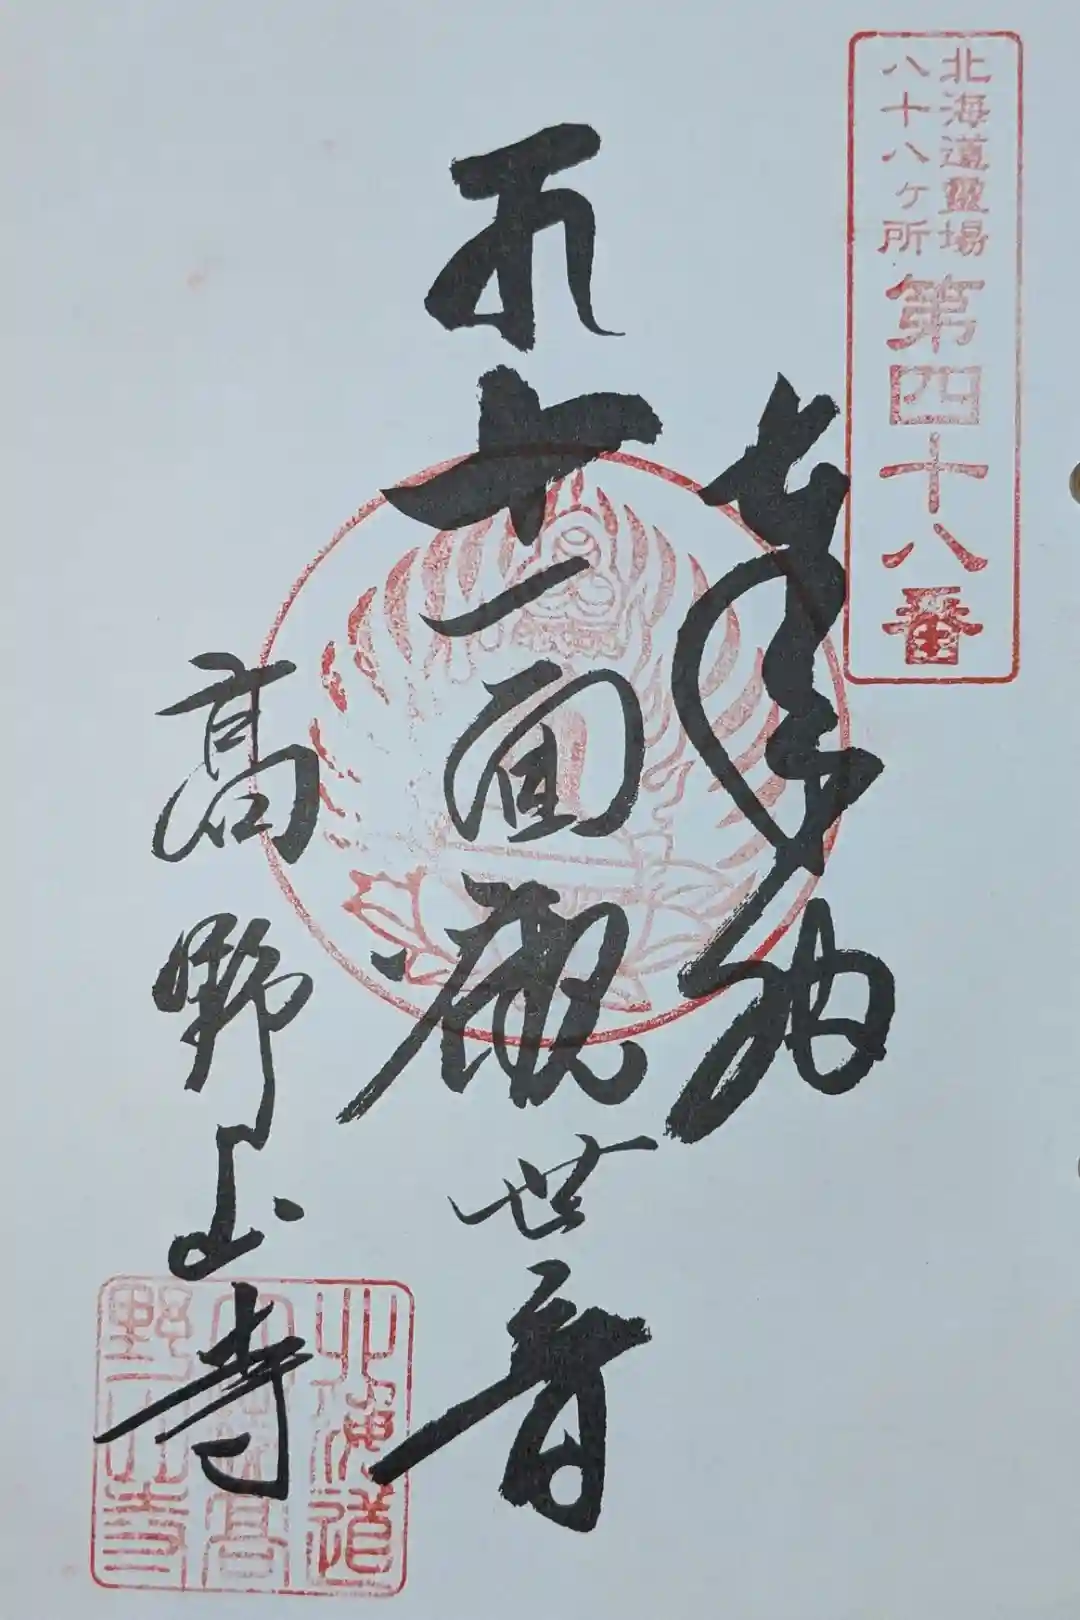 北海道霊場
八十八ヶ所
第四十八番
奉納
十一面観世音
高野山寺
北海道
野山寺